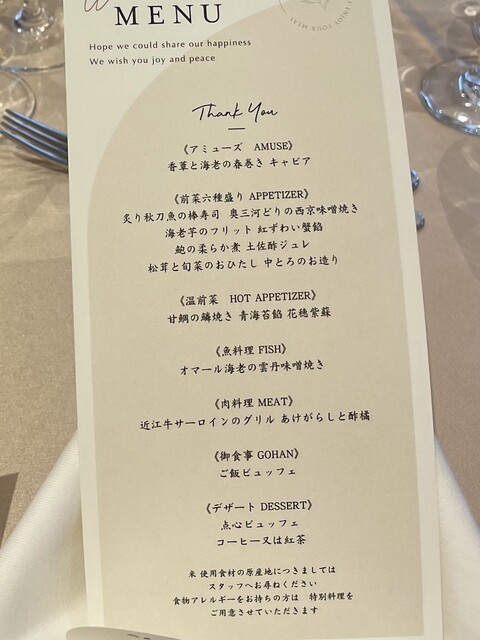 MENU
ENJOY YOUR MEAL
Hope we could share our happiness
We wish you joy and peace
Thank You
《アミューズ AMUSE》
香蕈と海老の春巻き キャビア
《前菜六種盛り APPETIZER》
炙り秋刀魚の棒寿司 奥三河どりの西京味噌焼き
海老芋のフリット 紅ずわい蟹餡
鮑の柔らか煮 土佐酢ジュレ
松茸と旬菜のおひたし 中とろのお造り
《温前菜 HOT APPETIZER》
甘鯛の鱗焼き 青海苔餡 花穂紫蘇
《魚料理 FISH》
オマール海老の雲丹味噌焼き
《肉料理 MEAT》
近江牛サーロインのグリル あけがらしと酢橘
《御食事 GOHAN》
ご飯ビュッフェ
《デザート DESSERT》
点心ビュッフェ
コーヒー又は紅茶
米 使用食材の原産地につきましては
スタッフへお尋ねください
食物アレルギーをお持ちの方は 特別料理を
ご用意させていただきます